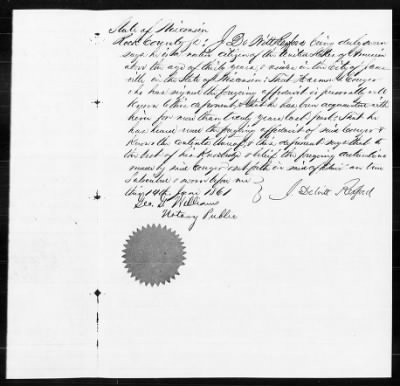 State of Wisconsin
Rock County ss: J. De Witt Rexford being duly sworn
says he is a native citizen of the United States of America
above the age of thirty years, & resides in the City of Janes
ville, in the State of Wisconsin: That
who has signed the foregoing affidavit is personally well
known to this deponent, & that he has been acquainted with
him for more than twenty years last past: That he
has heard read the foregoing affidavit of said Conger &
knows the contents thereof, & this deponent says that to
the best of his knowledge & belief the foregoing declarations
made by said Conger set forth in said affidavit are true
Subscribed & sworn before me
this 14th June 1861 } J. DeWitt Rexford
Geo. Williams
Notary Public